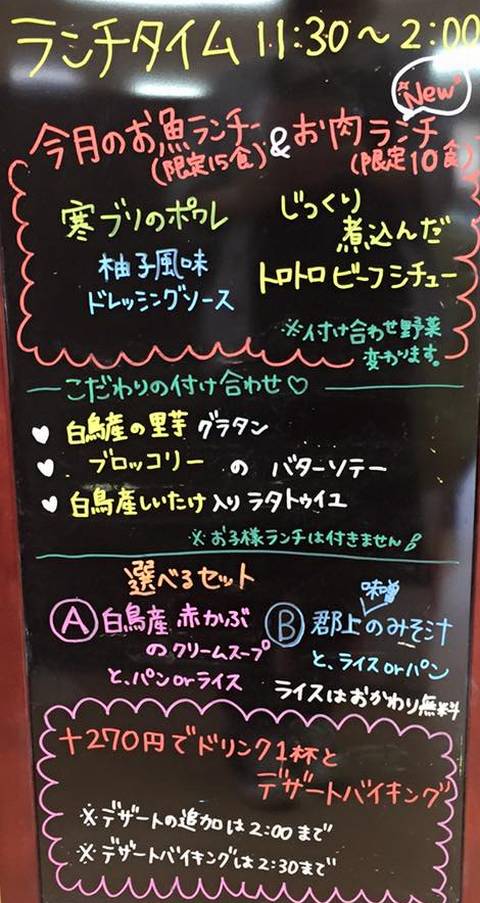 ランチタイム 11:30〜2:00
New
今月のお魚ランチ & お肉ランチ
(限定15食) (限定10食)
寒ブリのポワレ
柚子風味
ドレッシングソース
じっくり
煮込んだ
トロトロビーフシチュー
※付け合わせ野菜
変わります。
こだわりの付け合わせ♡
♥ 白鳥産の里芋グラタン
♥ ブロッコリー の バターソテー
♥ 白鳥産しいたけ入りラタトゥイユ
※お子様ランチは付きません
選べるセット
Ⓐ白鳥産 赤かぶ
のクリームスープ
と、パンorライス
味噌
Ⓑ郡上のみそ汁
と、ライスorパン
ライスはおかわり無料
+270円でドリンク1杯と
デザートバイキング
※デザートの追加は2:00まで
※デザートバイキングは2:30まで